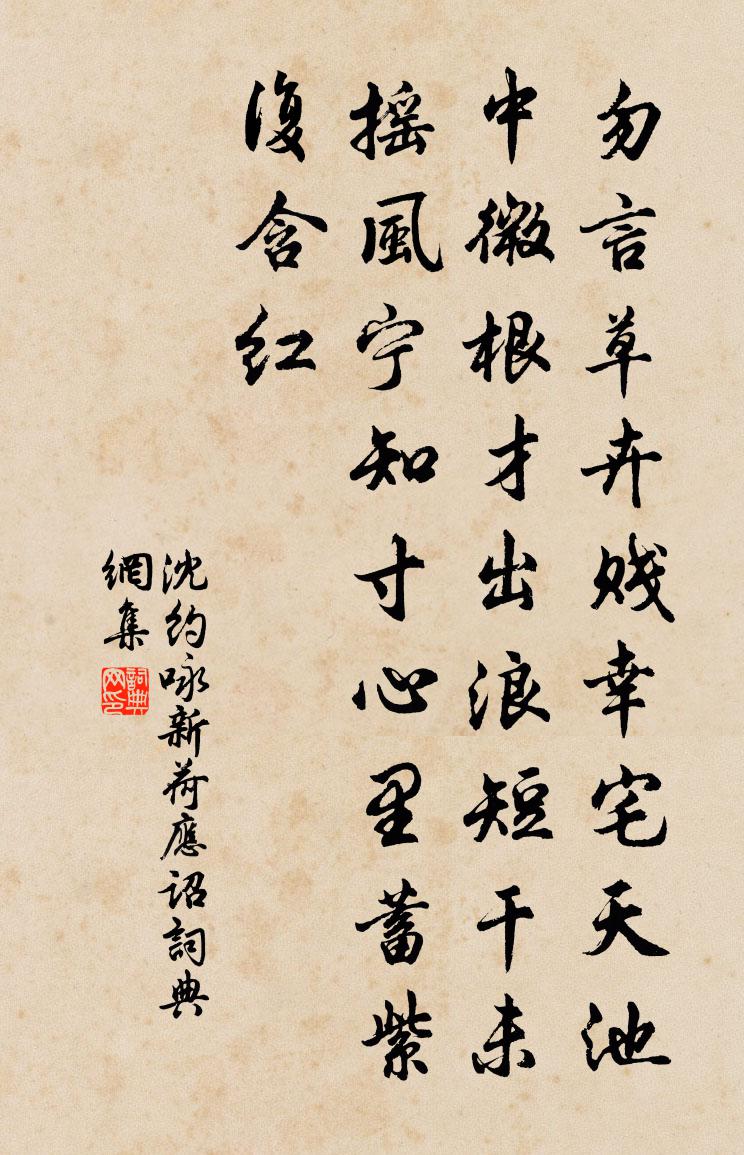 勿言草卉贱幸宅天池
中微根才出浪短干未
摇風宁知寸心里蓄紫
復含红
沈約咏新荷應詔詞典
網集
詞典
网印